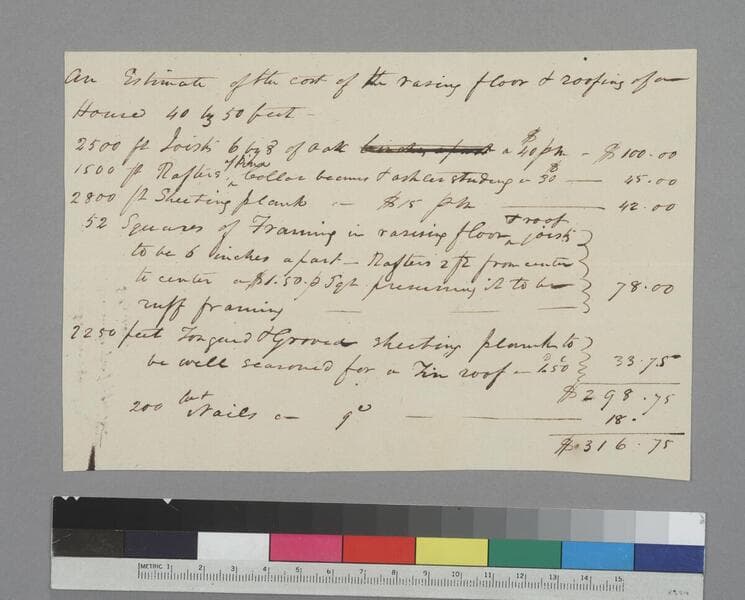 An Estimate of the cost of the rasing floor & roofing of a
House 40 by 50 feet -
2500 ft Joists 6 by 8 of oak a $40 pM - $100.00
1500 ft Rafters of Pine Collar beams & ashler studing a 30$ — 45.00
2800 ft Sheeting plank a $15 pM — 42.00
52 Squares of Framing in rarising floor & roof joists
to be 6 inches apart - Rafters 2 ft from center
to center a $1.50 p Sqr presuming it to be 78.00
ruff framing
2250 feet Tongued & Groved sheeting plank to
be well seasoned for a Tin roof a 1.50 33.75
$298.75
200 wt Nails a 9c — 18.
$316.75
METRIC 1 2 3 4 5 6 7 8 9 10 11 12 13 14 15